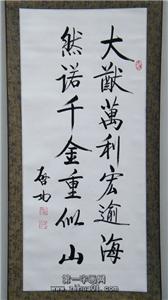 大猷萬利宏逾海
然諾千金重似山
啓功
第一字画网